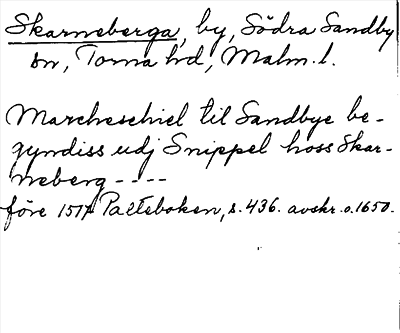 Skarneberga, by, Södra Sandby
sn, Torna hd, Malm. l.
Marcheschiel til Sandbye be-
gyndiss udj Snippel hoss Skar-
neberg ----
före 1517 Palteboken, s. 436. avskr. o. 1650.